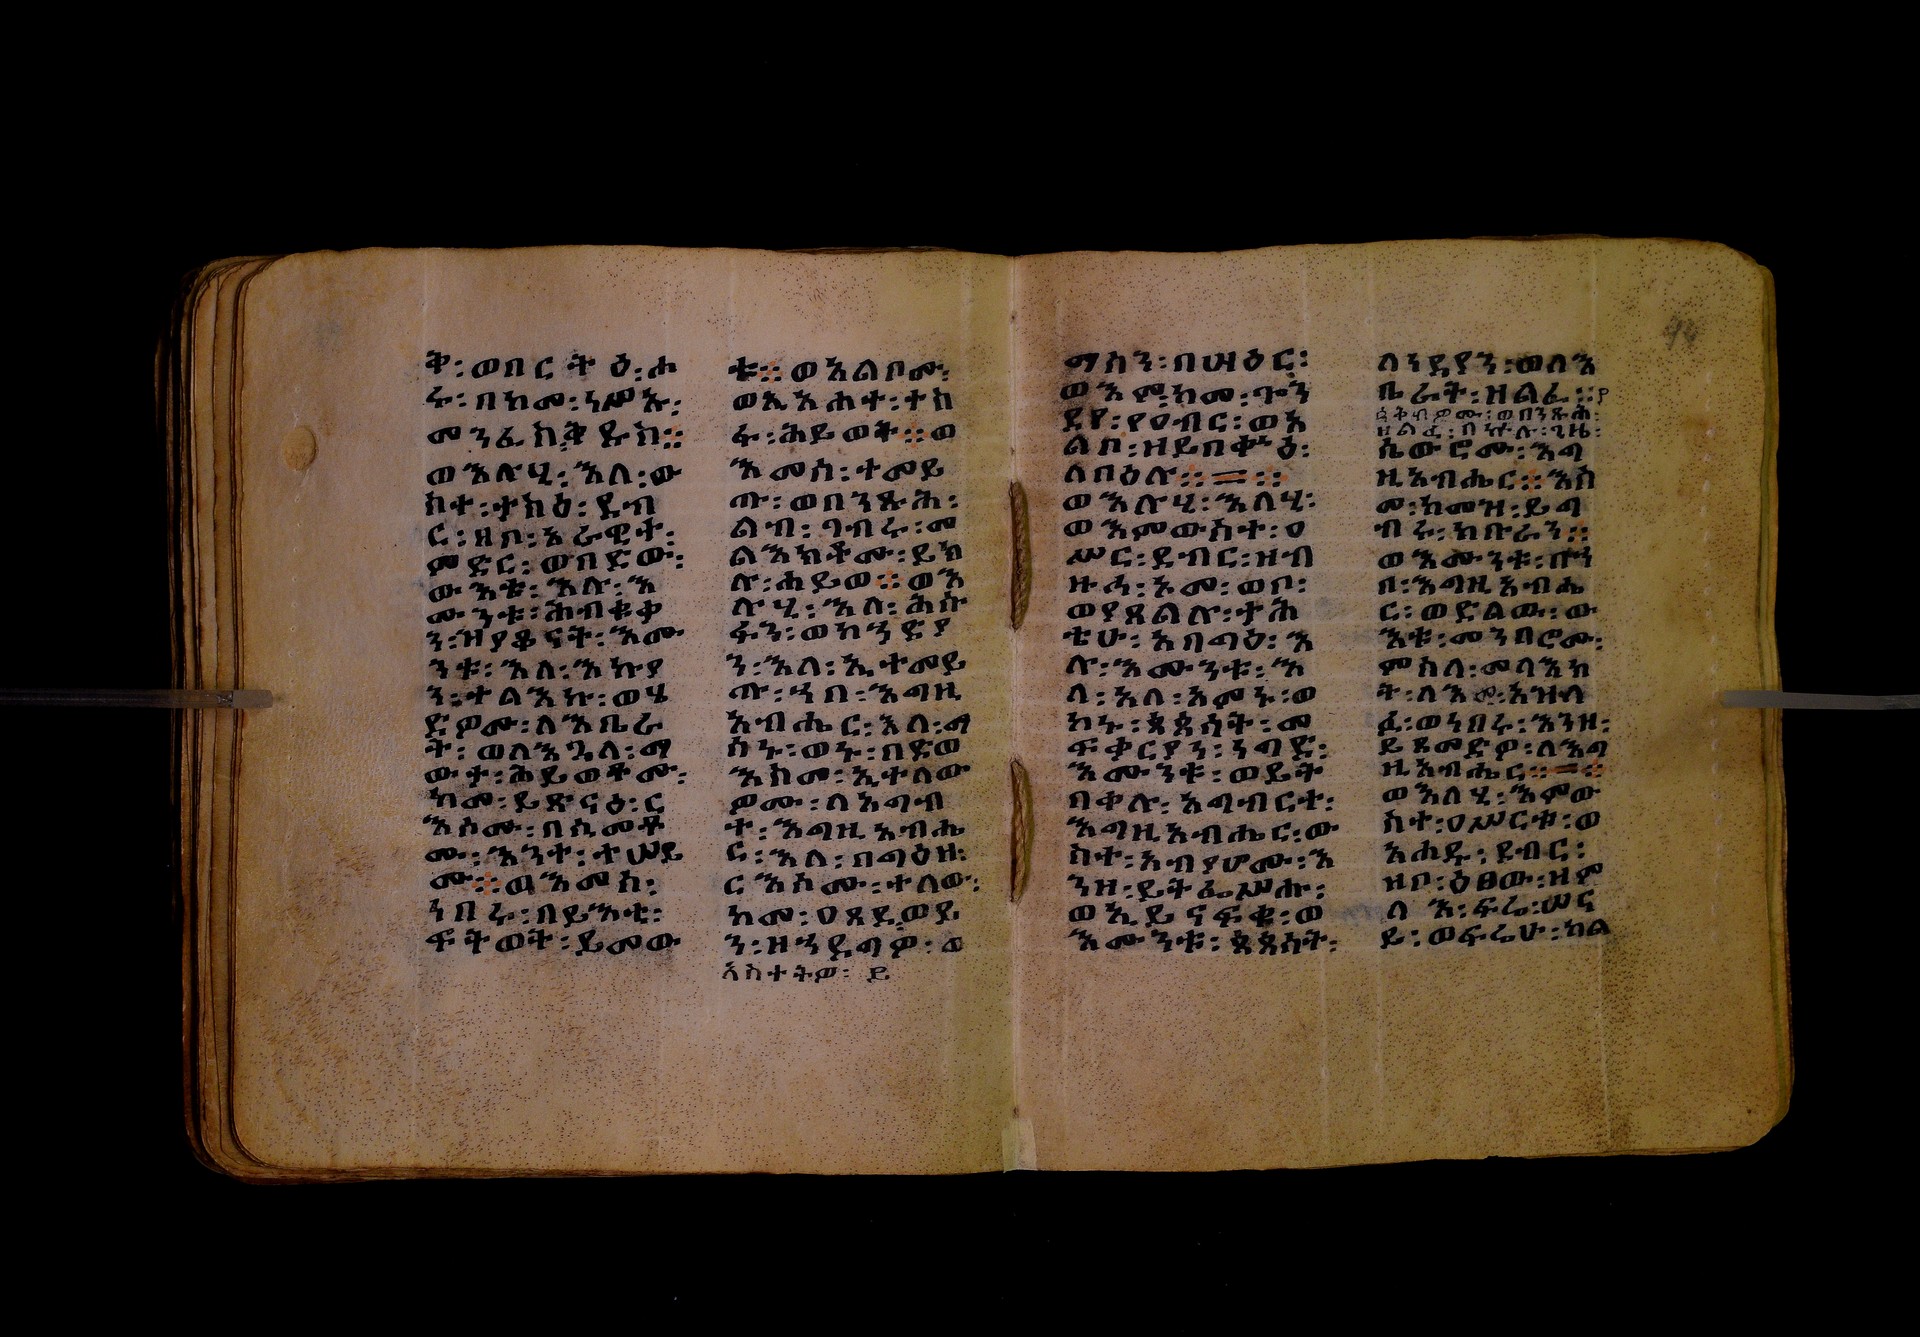 ቅ፡ወበርትዕ፡ሐ
ሩ፡በከመ፡ነሥኡ፡
መንፈከቅዱስ።
ወእሉሂ፡እለ፡ው
ስተ፡ተከዕ፡ደብ
ር፡ዘቦ፡አራዊተ፡
ምድር፡ወበድው፡
ውእቱ፡እሉ፡እ
ሙንቱ፡ሕብቁቃ
ን፡ዝያቆናት፡እሙ
ንቱ፡እለ፡እኩያ
ን፡ተልእኩ፡ወሄ
ድዎሙ፡ለእቤራ
ት፡ወለእጓለ፡ማ
ውታ፡ሕይወቶሙ፡
ከመ፡ይጽናዕ፡ር
እሶሙ፡በሲመቶ
ሙ፡እንተ፡ተሠይ
ሙ።ወእመሰ፡
ነበሩ፡በይእቲ፡
ፍትወት፡ይመው
ቱ።ወአልቦሙ፡
ወኢአሐተ፡ተስ
ፋ፡ሕይወት።ወ
እመሰ፡ተመይ
ጡ፡ወበንጹሕ፡
ልብ፡ገብሩ፡መ
ልእክቶሙ፡ይክ
ሉ፡ሐይወ።ወእ
ሉሂ፡እለ፡ሕሱ
ፋን፡ወከኃድያ
ን፡እለ፡ኢተመይ
ጡ፡ኀበ፡እግዚ
አብሔር፡አለ፡ማ
ሰኑ፡ወኑ፡በድወ
እከመ፡ኢተለው
ዎሙ፡ለአግብ
ተ፡እግዚአብሔ
ር፡እለ፡በግዕዘ፡
ርእሶሙ፡ተለው፡
ከመ፡ዐጸደ፡ወይ
ን፡ዘኀደግዎ፡ወ
አስተትዎ፡ይ
ማስን፡በሣዕር፡
ወእምከመ፡ጐን
ደየ፡የዐብር፡ወአ
ልቦ፡ዘይበቍዕ፡
ለበዕሉ።=።
ወእሉሂ፡እለሂ፡
ወእምውስተ፡ዐ
ሥር፡ደብር፡ዝብ
ዙኃ፡ኦመ፡ወቦ፡
ወያጸልሉ፡ታሕ
ቴሁ፡አበግዕ፡እ
ሉ፡እሙንቱ፡እ
ለ፡አለ፡አምኑ፡ወ
ኮኑ፡ጳጳሳት፡መ
ፍቀርያን፡ነግድ፡
እሙንቱ፡ወይት
በቀሉ፡አግብርተ፡
እግዚአብሔር፡ው
ስተ፡አብያሆሙ፡እ
ንዘ፡ይትፌሥሑ፡
ወኢይናፍቁ፡ወ
እሙንቱ፡ጳጳሳት፡
ለነዳያን፡ወለእ
ቤራት፡ዘልፈ።የ
ዓቅብዎሙ፡ወበንጹሕ፡
ዘልፈ፡በኵሉ፡ጊዜ፡
ኬውሮሙ፡እግ
ዚአብሔር።እስ
መ፡ከመዝ፡ይገ
ብሩ፡ክቡራን።
ወእሙንቱ፡በኀ
በ፡እግዚአብሔ
ር፡ወድልው፡ው
እቱ፡መንበሮሙ፡
ምስለ፡መላእክ
ት፡ለእመ፡አዝለ
ፈ፡ወነበሩ፡እንዘ፡
ይጸመድዎ፡ለእግ
ዚአብሔር።=።
ወእለሂ፡እምው
ስተ፡ዐሥርቱ፡ወ
አሐዱ፡ደብር፡
ዘቦ፡ዕፀው፡ዘም
ሉእ፡ፍሬ፡ሠና
ይ፡ወፍሬሁ፡ካል